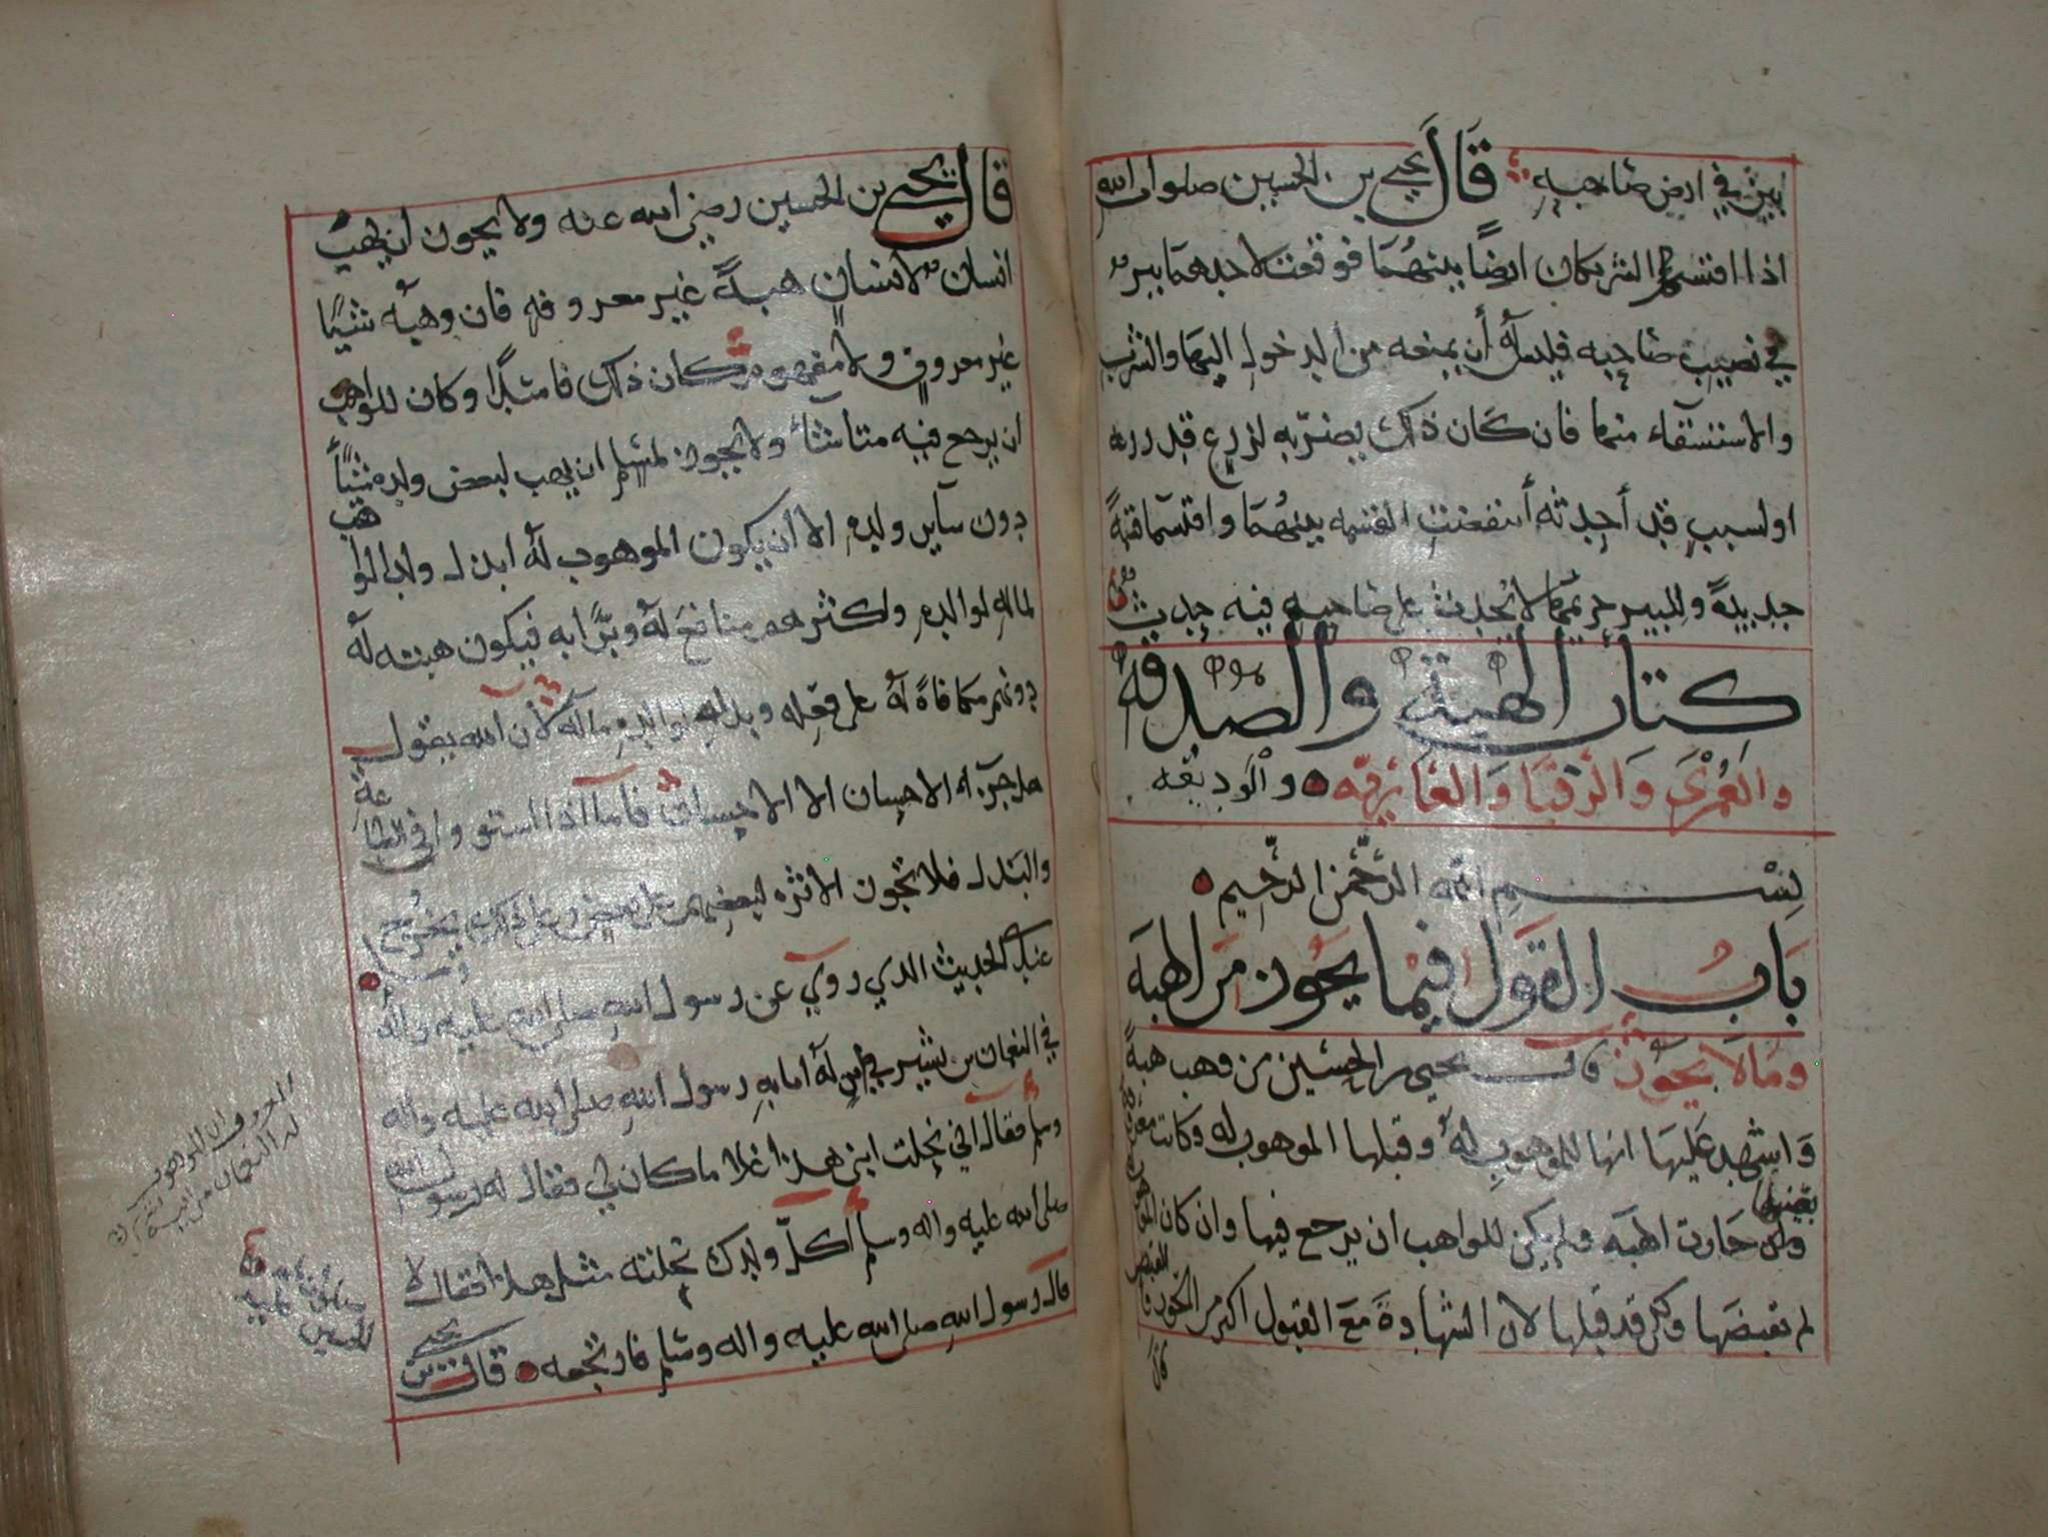 في ارض صاحبه قال يحيى بن الحسين صلوات الله
اذا اقتسم الشريكان ارضًا بينهما فوقعت لاحدهما بير
في نصيب صاحبه فليس له أن يمنعه من الدخول اليها والشرب
والاستسقاء منها فان كان ذلك يضر به لزرع قد زرعه
او لسبب قد أحدثه أنتقضت القسمه بينهما واقتسما قسمةً
جديدةً وللبير حريمها لا يحدث على صاحبه فيه حدث
كتاب الهبة والصدقه
والعمرى والرقبا والعاريه والوديعه
بسم الله الرحمن الرحيم
باب القول فيما يجوز من الهبه
وما لا يجوز قال يحيى بن الحسين من وهب هبةً
واشهد عليها انها للموهوب له وقبلها الموهوب له وكانت معروفة
بعينها
جازت الهبه ولم يكن للواهب ان يرجع فيها وان كان الموهوب
لم يقبضها وكان قد قبلها لان الشهادة مع القبول اكبر من الحوز
القبض
قال يحيى بن الحسين رضي الله عنه ولا يجوز ان يهب
انسان لانسانٍ هبةً غير معروفه فان وهبه شيئًا
غير معروفٍ ولا مفهوم كان ذلك فاسدًا وكان للواهب
ان يرجع فيه متا شاء ولا يجوز لمسلم ان يهب لبعض ولده شيئًا
دون ساير ولده الا ان يكون الموهوب له ابذل ولد الواهب
لماله لوالده واكثرهم منافع له وبرًا به فيكون هبته له
دونهم مكافاة له على فعله وبذله لوالده ماله لان الله يقول
هل جزاء الاحسان الا الاحسان فاما اذا استووا في الطاعة
والبذل فلا تجوز الاثره لبعضهم على بعض وعلى ذلك يخرج
عندي الحديث الذي روي عن رسول الله صلى الله عليه واله وسلم
في النعمان بن بشير في ابن له اتا به رسول الله صلى الله عليه واله
وسلم فقال اني نحلت ابني هذا غلاما كان لي فقال له رسول الله
صلى الله عليه واله وسلم أكلّ ولدك نحلته مثل هذا فقال لا
قال رسول الله صلى الله عليه واله وسلم فارتجعه قال يحيى بن
المعروف ان الموهوب
له النعمان من ابيه